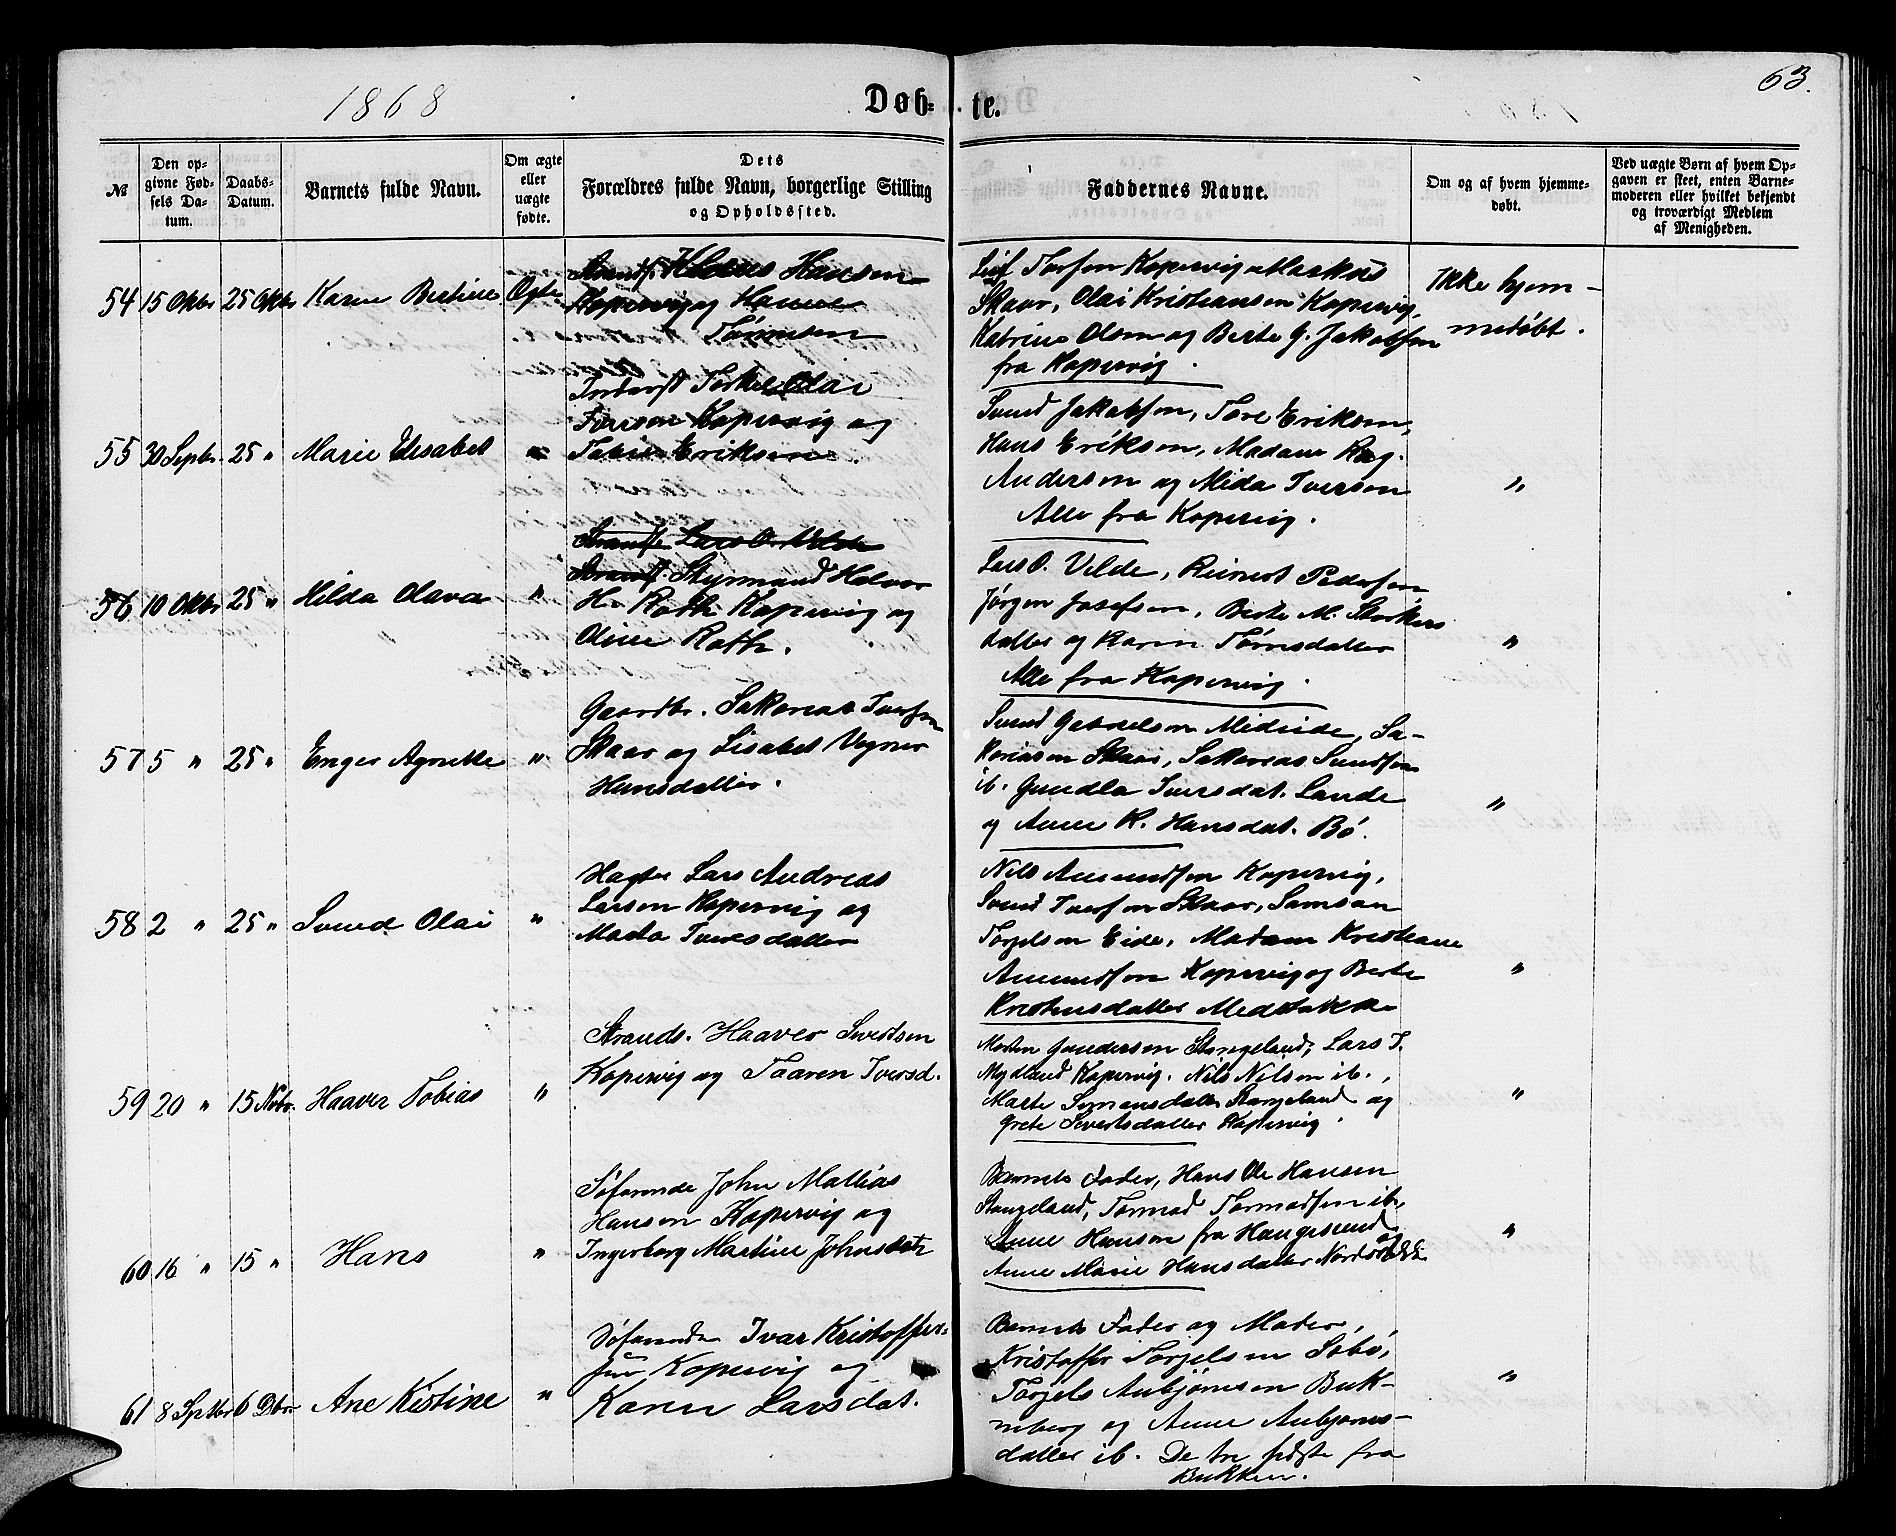 1868
Døb-
te.
63.
№
Den op-
givne Fød-
sels Da-
tum.
Daabs-
Datum.
Barnets fulde Navn.
Om ægte
eller
uægte
fødte.
Dets
Forældres fulde Navn, borgerlige Stilling
og Opholdssted.
Faddernes Navne.
Om og af hvem hjemme-
døbt.
Ved uægte Børn af hvem Op-
gaven er skeet, enten Barne-
moderen eller hvilket bekjendt
og troværdigt Medlem
af Menigheden.
54 15 Oktbr 25 Oktbr Karen Bertine Ægte
Strands. Klaus Hansen
Kopervig og Hanne
Tønnesen
Leif Torsen Kopervig Markus
Skaar, Olai Kristiansen Kopervig,
Katrine Olsen og Berte G. Jakobsen
fra Kopervig.
Ikke hjem-
medøbt.
55 30 Septbr. 25 " Marie Elisabet "
Torkel Olai
Iversen Kopervig og
Tabia Eriksen.
Svend Jakobsen, Tore Eriksen,
Hans Eriksen, Madame Rag.
Anderson og Mida Iverson
Alle fra Kopervig.
"
56 10 Oktbr 25 " Hilda Olava "
Strands. Lars O. Velde
Strands. Styrmand Halvor
H. Roth Kopervig og
Oline Roth.
Lars O. Velde, Reinert Pedersen
Jørgen Josefsen, Berte M. Storkers
datter og Karen Tørresdatter
Alle fra Kopervig.
"
57 5 " 25 " Enger Agnette "
Gaardbr. Sakarias Iversen
Skaar og Lisabet Vegner
Hansdatter.
Svend Gabrielsen Mideide, Sa-
kariasen Skaar, Sakarias Svendsen
ib. Gundla Iversdat. Lande
og Anne K. Hansdat. Bø.
"
58 2 " 25 " Svend Olai "
Lars Andreas
Larsen Kopervig og
Marta Iversdatter
Nils Amundsen Kopervig,
Svend Iversen Skaar, Samson
Torjelsen Eide, Madam Kristiane
Amundsen Kopervig og Berte
Kristensdatter Medstokke
"
59 20 " 15 Novbr. Haaver Tobias "
Strands. Haaver Sivertsen
Kopervig og Taaren Iversd.
Morten Gundersen Stangeland, Lars T.
Mydland Kopervig. Nils Nilsen ib.,
Marte Simensdatter Stangeland og
Grete Sivertsdatter Kopervig.
"
60 16 " 15 " Hans "
Søfarende John Mathias
Hansen Kopervig og
Ingerborg Martine Johnsdatr
Barnets Fader, Hans Ole Hansen
Stangeland, Tormod Tormodsen ib,
Anne Hansen fra Haugesund og
Anne Marie Hansdatter Nordstokke
"
61 8 Septbr 6 Dbr. Ane Kistine "
Søfarende Ivar Kristoffer-
sen Kopervig og
Karen Larsdat.
Barnets Fader og Moder,
Kristoffer Torjelsen Sebø,
Torjels Anbjørnsen Buk-
neberg og Anne Anbjørns-
datter ib. De tre sidste fra
Bukken.
"